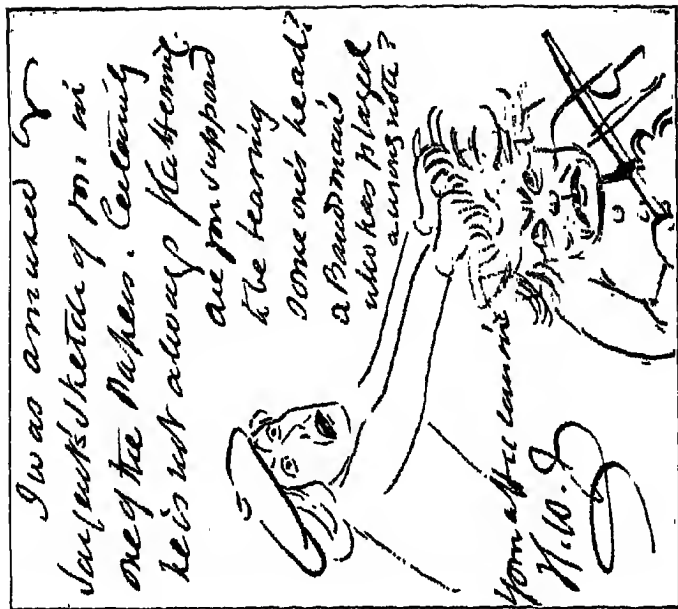 I was amused by
Sargent's Sketch of you in
one of the Papers. Certainly
he is not always flattering.
are you supposed
to be tearing
some one's head?
a Bandsman's
who has played
a wrong note?
Your affte cousin
H. W. L